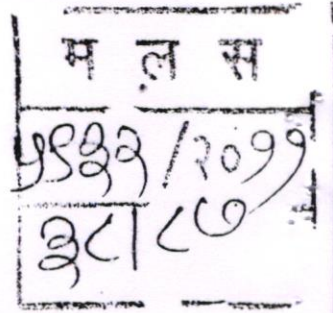 म ल स
५९३२/२०११
३८/८७